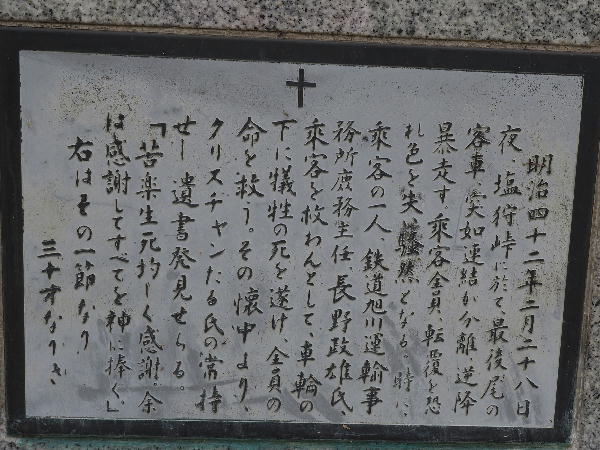 明治四十二年二月二十八日
夜、塩狩峠に於て最後尾の
客車、突如連結が分離逆降
暴走す。乗客全員、転覆を恐
れ色を失い騒然となる。時に、
乗客の一人、鉄道旭川運輸事
務所庶務主任長野政雄氏、
乗客を救わんとして、車輪の
下に犠牲の死を遂げ、全員の
命を救う。その懐中より、
クリスチャンたる氏の常持
せし遺書発見せらる。
「苦楽生死均しく感謝。余
は感謝してすべてを神に捧ぐ」
右はその一節なり
三十才なりき